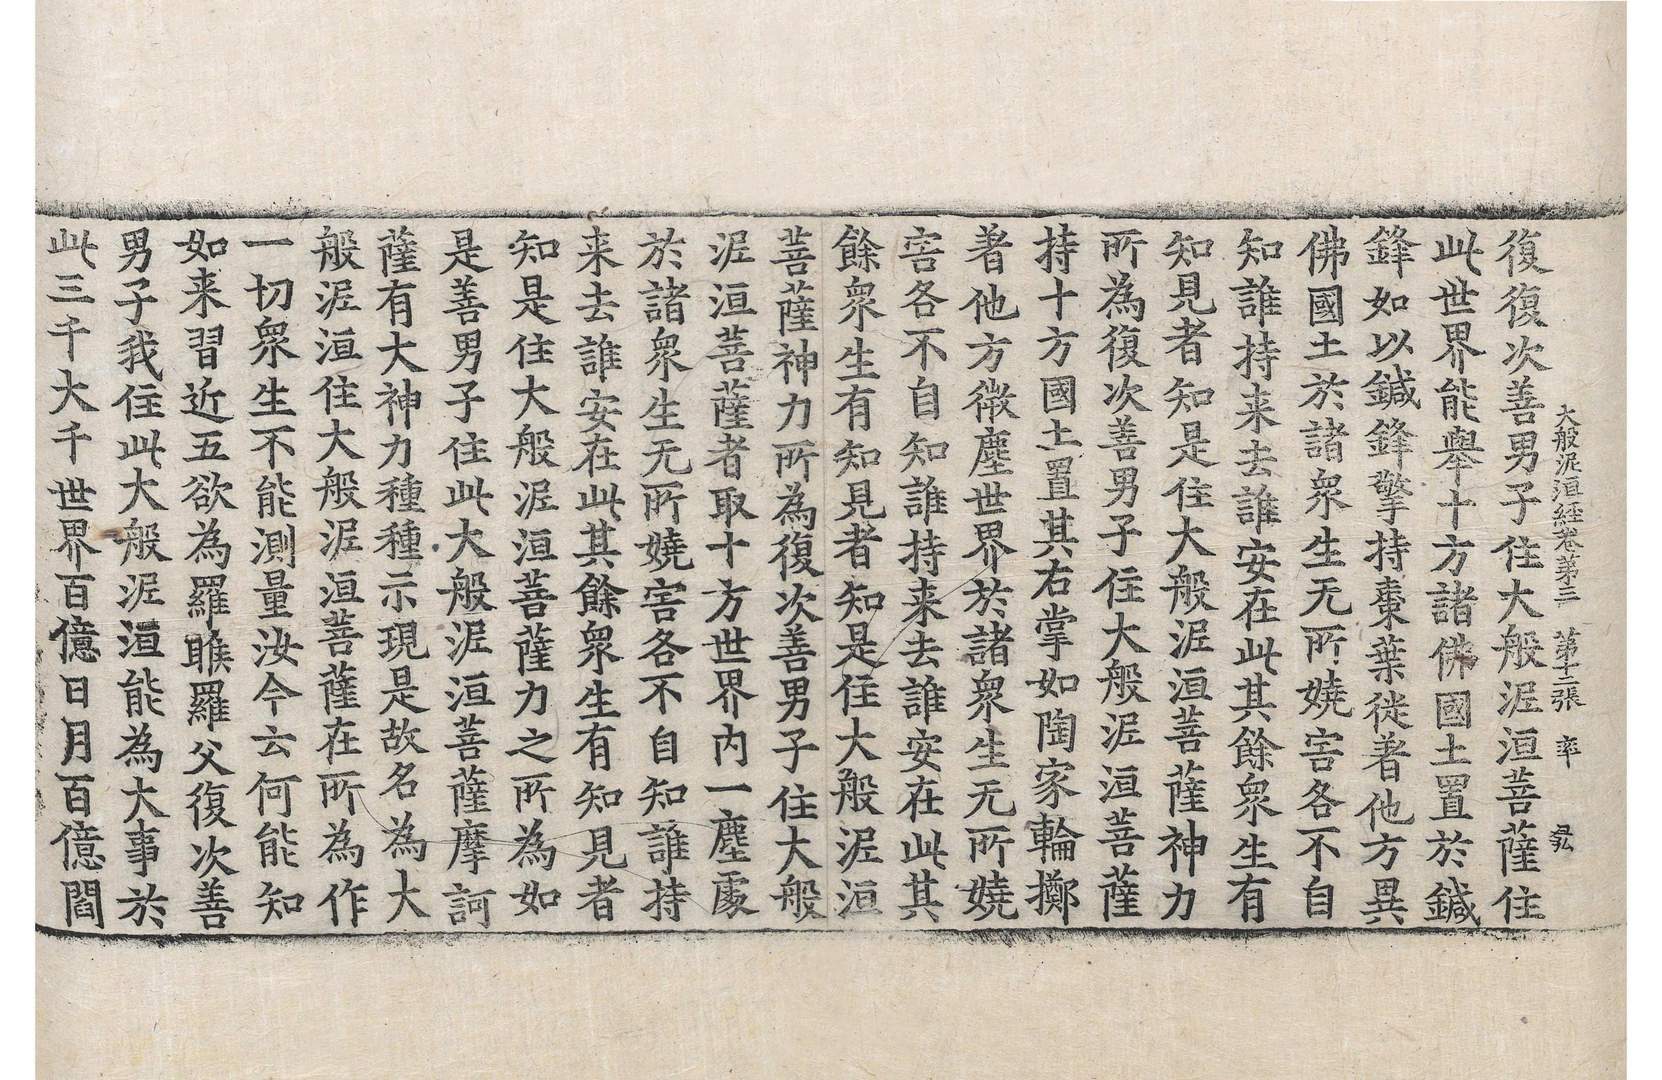 大般泥洹經卷第三　第十二張　率
復復次善男子住大般泥洹菩薩住
此世界能舉十方諸佛國土置於鍼
鋒如以鍼鋒擎持棗葉從著他方異
佛國土於諸衆生无所嬈害各不自
知誰持来去誰安在此其餘衆生有
知見者知是住大般泥洹菩薩神力
所為復次善男子住大般泥洹菩薩
持十方國土置其右掌如陶家輪擲
著他方微塵世界於諸衆生无所嬈
害各不自知誰持来去誰安在此其
餘衆生有知見者知是住大般泥洹
菩薩神力所為復次善男子住大般
泥洹菩薩者取十方世界內一塵處
於諸衆生无所嬈害各不自知誰持
来去誰安在此其餘衆生有知見者
知是住大般泥洹菩薩力之所為如
是善男子住此大般泥洹菩薩摩訶
薩有大神力種種示現是故名為大
般泥洹住大般泥洹菩薩在所為作
一切衆生不能測量汝今云何能知
如来習近五欲為羅睺羅父復次善
男子我住此大般泥洹能為大事於
此三千大千世界百億日月百億閻